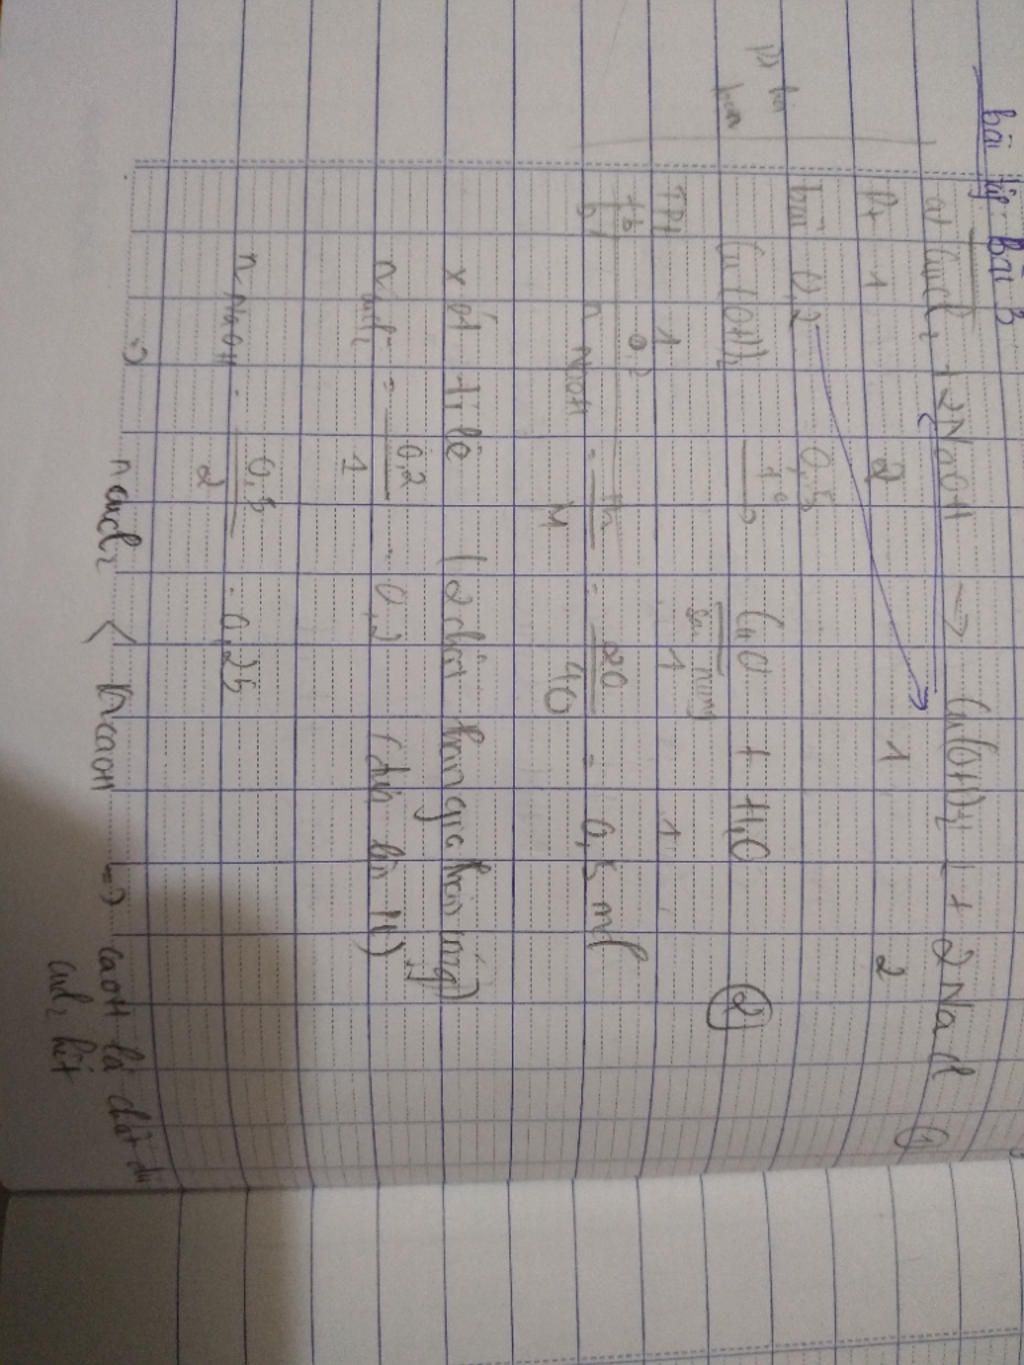 bài tập: Bài 3
a) CuCl₂ + 2NaOH → Cu(OH)₂↓ + 2NaCl (1)
Pt 1 2 1 2
bài 0,2 0,5
Cu(OH)₂ t° → CuO + H₂O (2)
1 1 1
0,2
b) n NaOH = m / M = 20 / 40 = 0,5 mol
xét tỉ lệ (2 chất tham gia
n CuCl₂ = 0,2 / 1 = 0,2
n NaOH = 0,5 / 2 = 0,25
=> n CuCl₂ < n NaOH => là chất dư
CuCl₂ hết